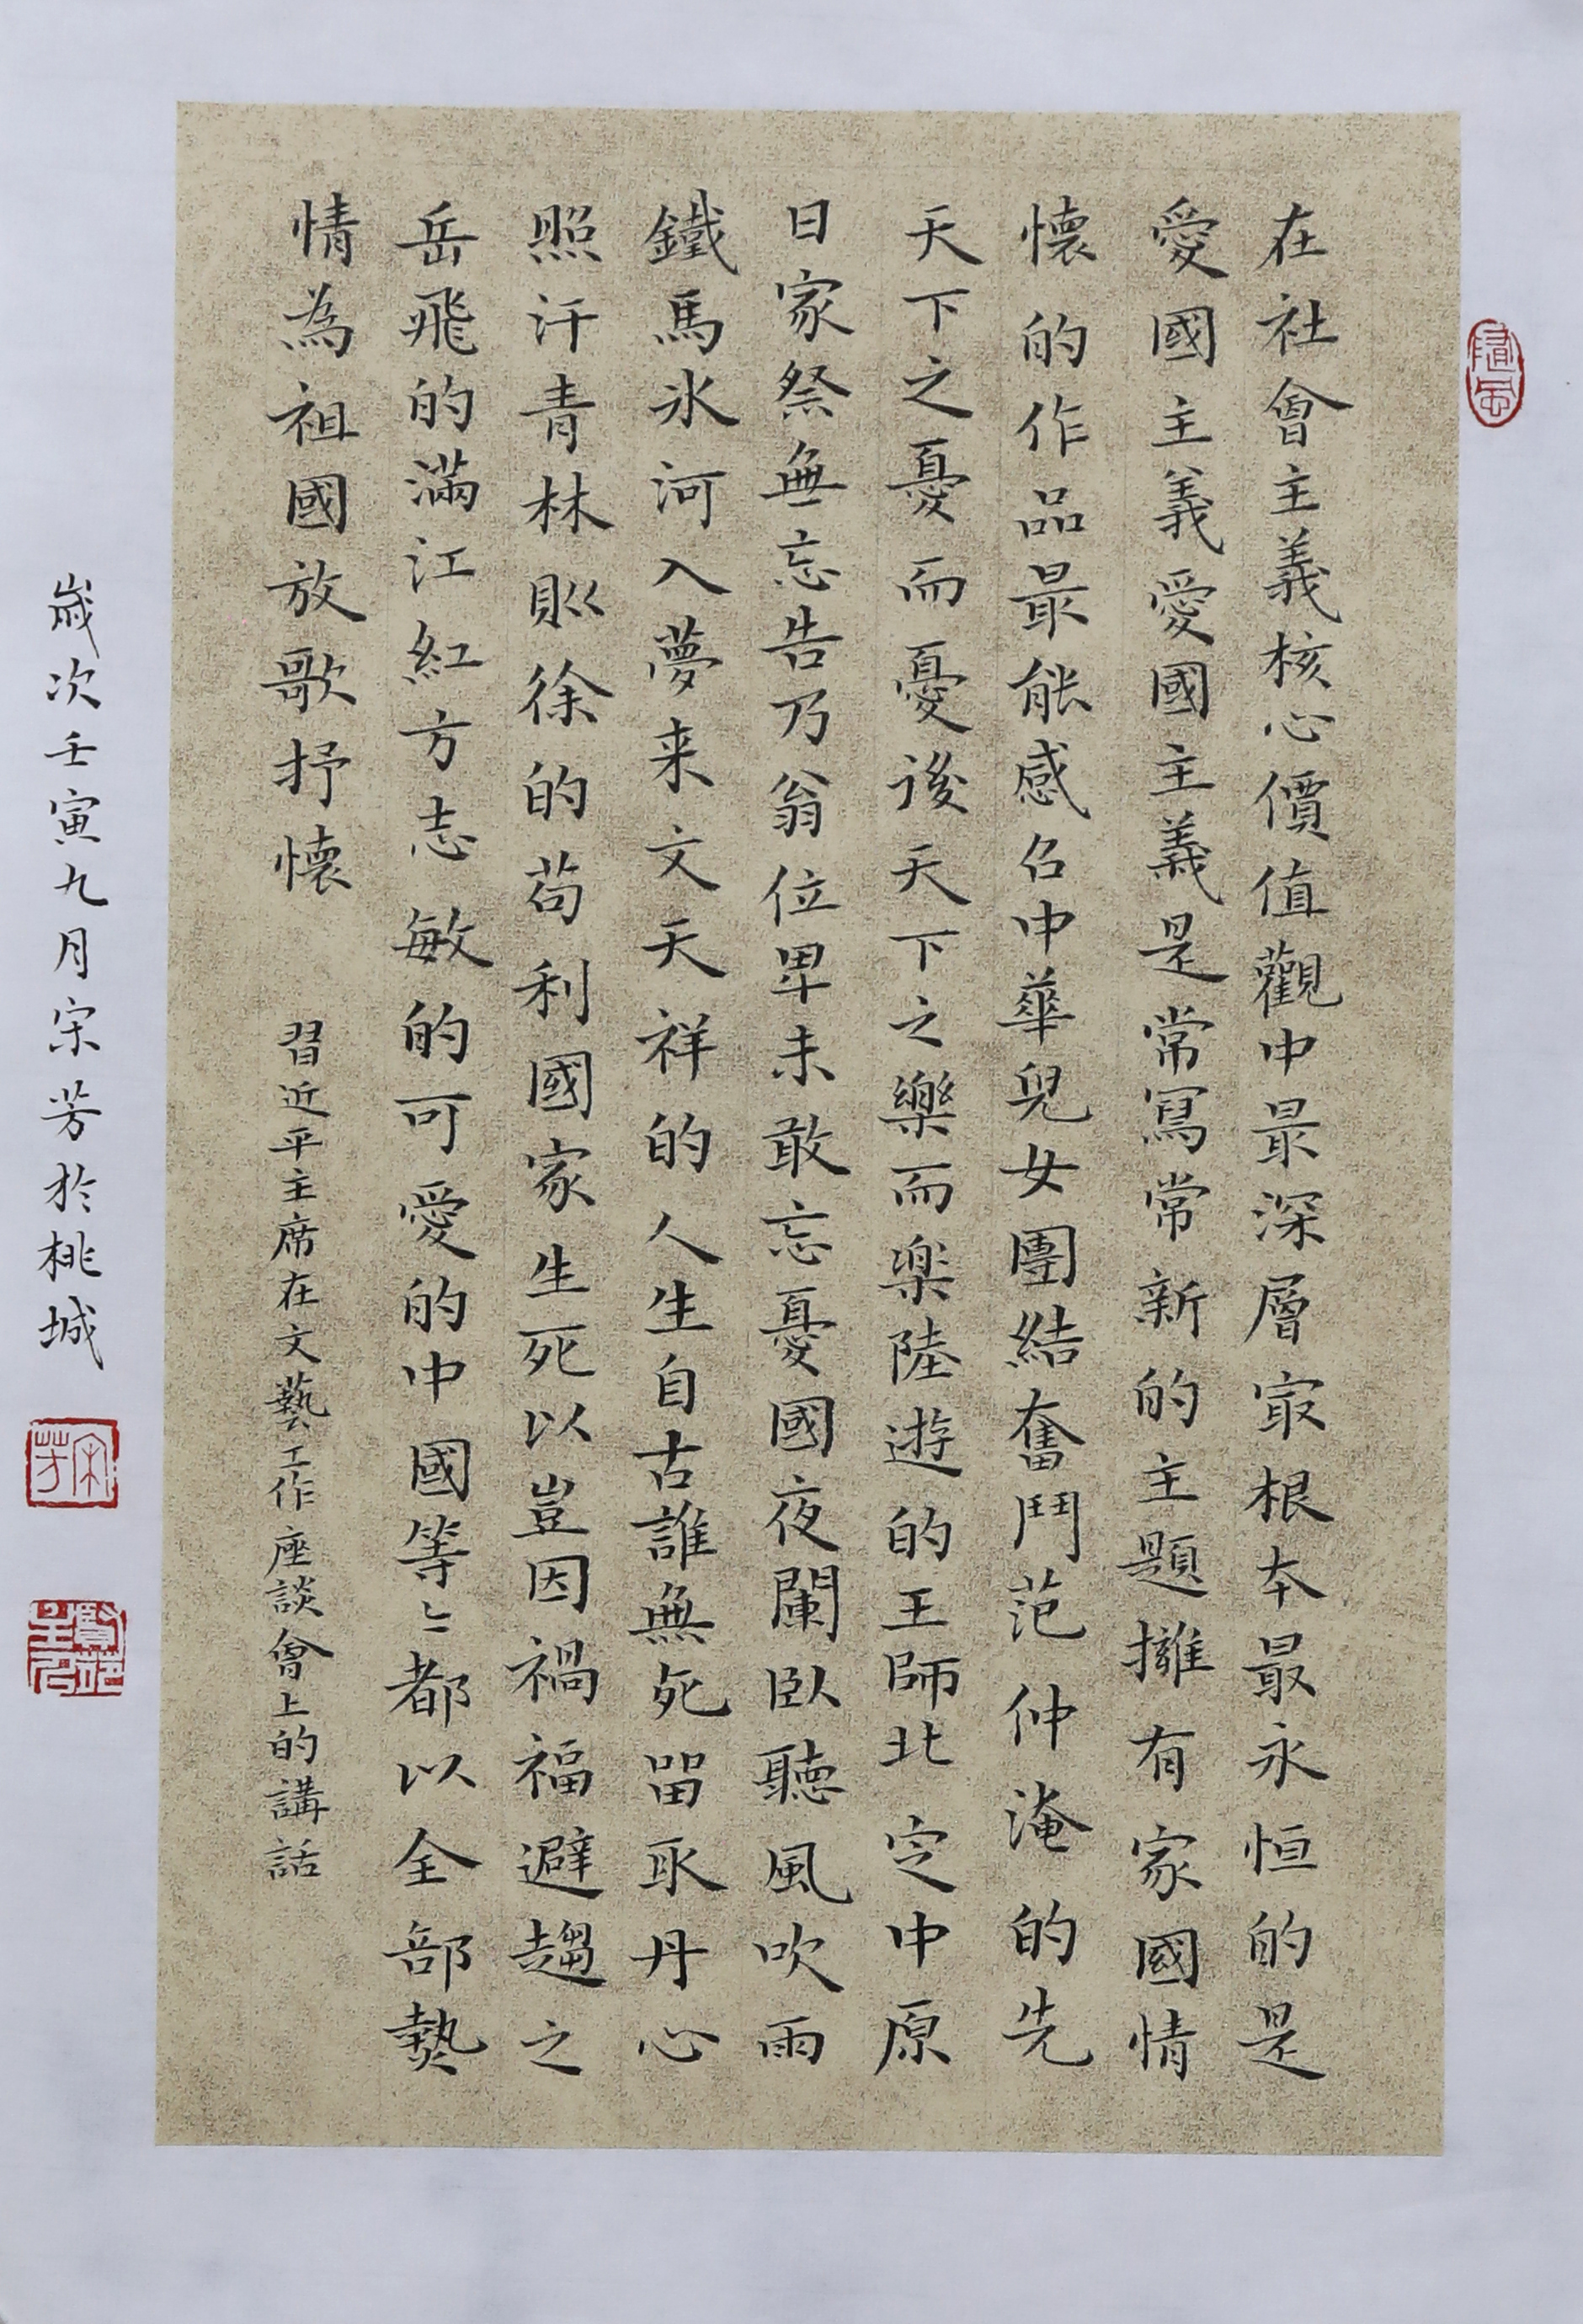 在社會主義核心價值觀中最深層寂根本最永恒的是
愛國主義愛國主義是常寫常新的主題擁有家國情
懷的作品最能感召中華兒女團結奮鬥范仲淹的先
天下之憂而憂後天下之樂而楽陸遊的王師北定中原
日家祭無忘告乃翁位卑未敢忘憂國夜闌臥聽風吹雨
鐵馬氷河入夢来文天祥的人生自古誰無死留取丹心
照汗青林則徐的苟利國家生死以豈因禍福避趨之
岳飛的滿江紅方志敏的可愛的中國等〻都以全部熱
情為祖國放歌抒懷
習近平主席在文藝工作座談會上的講話
歲次壬寅九月宋芳於桃城
宋芳